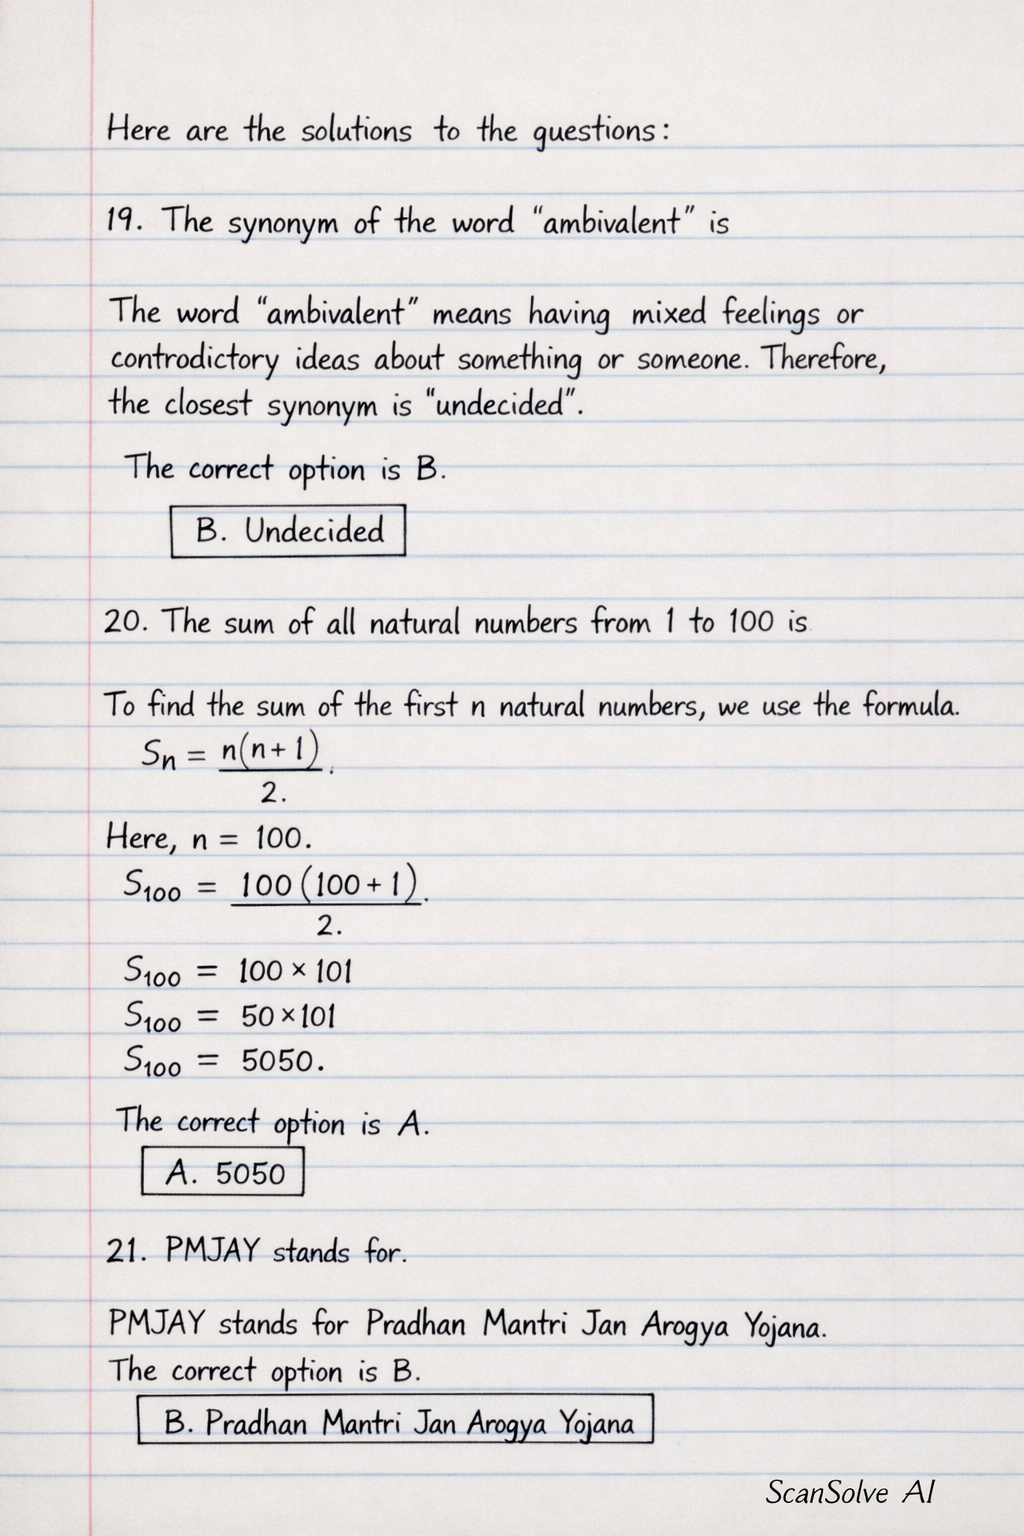 Here are the solutions to the questions:
19. The synonym of the word "ambivalent" is
The word "ambivalent" means having mixed feelings or
controdictory ideas about something or someone. Therefore,
the closest synonym is "undecided".
The correct option is B.
B. Undecided
20. The sum of all natural numbers from 1 to 100 is
To find the sum of the first n natural numbers, we use the formula.
Sn = n(n+1).
2.
Here, n = 100.
S100 = 100 (100+1).
2.
S100 = 100 × 101
S100 = 50 × 101
S100 = 5050.
The correct option is A.
A. 5050
21. PMJAY stands for.
PMJAY stands for Pradhan Mantri Jan Arogya Yojana.
The correct option is B.
B. Pradhan Mantri Jan Arogya Yojana
ScanSolve AI